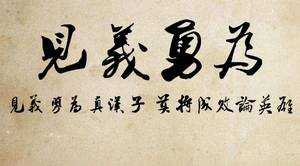 見義勇為
見義勇為真漢子 莫將成敗論英雄